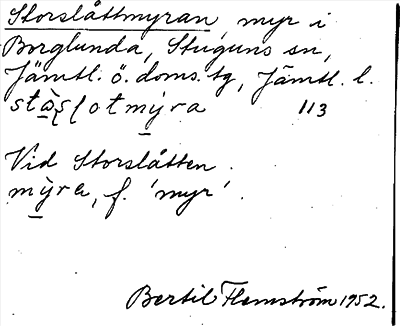 Storslåttmyran, myr i
Borglunda, Stuguns sn,
Jämtl. ö. doms. tg, Jämtl. l.
113
Vid Storslåtten.
mỳra, f. 'myr'.
Bertil Flemström 1952.